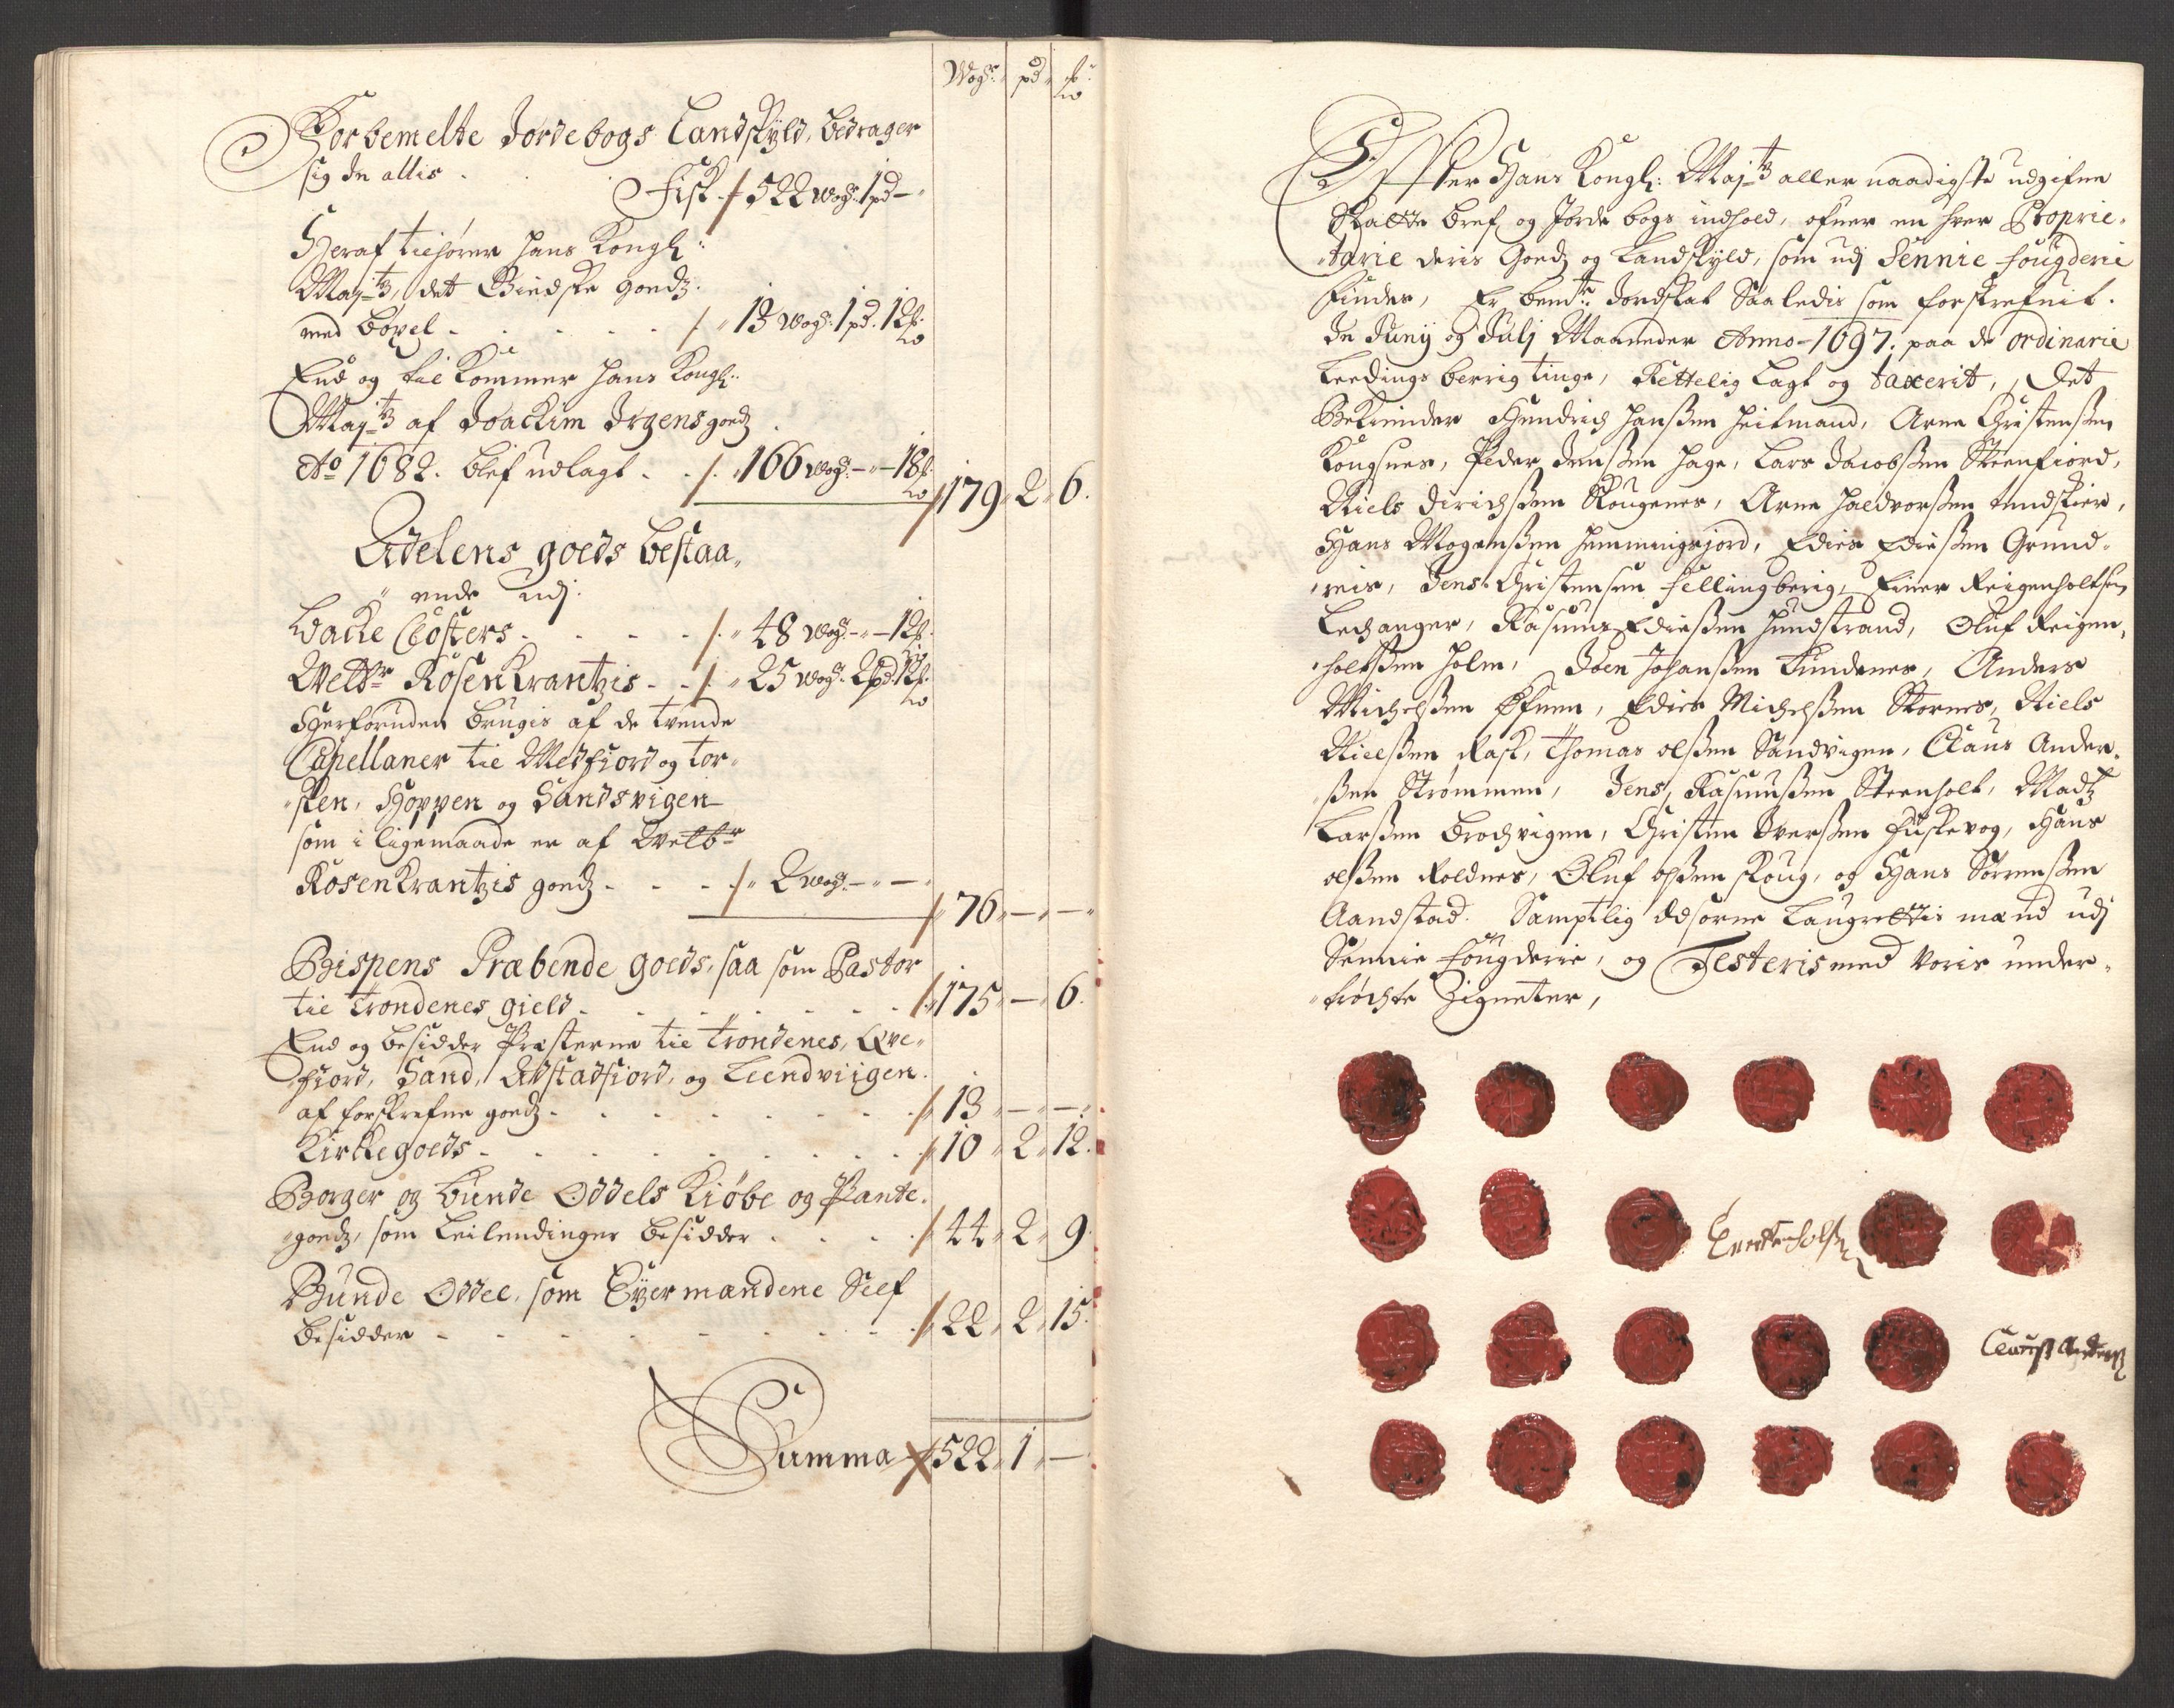 Wogr. pd lb
Forbemelte Jordebogs Landskyld, bedrager
sig in allis .
Fisk 522 wogr. 1 pd —
Heraf tilhører hans Kongl:
Maytz, det Giedske goedz
med Bøxel . . . . . 13 wogr: 1 pd. 12 lb
End og til kommer hans Kongl:
Maytz af Joackim Irgens goedz
Ao 1682. blef udlagt . . 166 wogr — 18 lb
179 2 6.
Adelens goeds bestaa-
ende udj:
Backe Closters . . . . 48 wogr — 12 lb
Welbr Rosenkrantzis . . 25 wogr. 2 pd. 12 lb
Herforuden brugis af de tvende
Capellaner til Medfiord og Tor-
sken, Hoppen og Sandsvigen
som i ligemaade er af Welbr
Rosenkrantzis goedz . . . 2 wogr — —
76 — —
Bispens Præbende goeds, saa som Pastor
til Trondenes gield . . . . . 175 — 6.
End og besidder Præsterne til Trondenes, Qve-
fiord, Sand, Astadfiord, og Leendviigen
af forskrefne goedz . . . . . . 13 — —
Kirkegoeds . . . . . . . . 10 2 12.
Borger og Bunde Oddels Kiøbe og Pante-
goedz, som Leilendinger besidder . . . 44 2 9
Bunde Oddel, som Eyermandene Self
besidder . . . . . . . . 22 2 15.
Summa 522 1 —
Effter Hans Kongl: Maytz aller naadigste udgifne
Skatte bref og Jorde bogs indhold, ofuer en hver Proprie-
tarie deris Goedz og Landskyld, som udj Sennie fougderie
findes, Er bemte Jordskat Saaledis som forskrefuit.
In Junij og Julj Maaneder Anno 1697. paa de ordinarie
Leedings berrig tinge, Rettelig lagt og taxerit, Det
Bekiender Hendrich Hanßen Heitmand, Arne Christenßen
Kougsnes, Peder Jenßen Hage, Lars Jacobßen Steenfiord,
Niels Dirichßen Skougenes, Arne Haldvorßen
Hans Mogenßen Hemmingsjord, Edies Edisßen Grund-
reis, Jens Christensen Fellingberig, Einer Reigenholtsen
Lechanger, Rasmus Edisßen Hundstrand, Oluf Reigen-
holtßen Holm, Joen Johanßen Kindenes, Anders
Michelßen Efuen, Edies Michelßen Stornes, Niels
Nielßen Rask, Thomas olßen Sandvigen, Claus Ander-
ßen Strømmen, Jens Rasmusßen Steenholt, Madtz
Larßen Brochvigen, Christen Iverßen Fuskevog, Hans
olßen Roldnes, Oluf olßen Skoug, og Hans Sørrenßen
Aandstad. Samptlig Edsorne Laugrettis mænd udj
Sennie Fougderie, og Testeris med voris under-
trøchte Zigneter,
Clauß Anderß